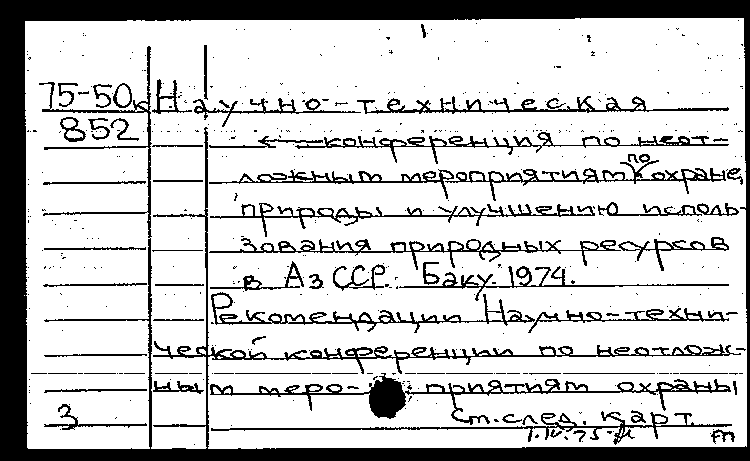 75-50к Научно-техническая
852
конференция по неот-
ложным мероприятиям по охране
природы и улучшению исполь-
зования природных ресурсов
в АзССР. Баку. 1974.
Рекомендации Научно-техни-
ческой конференции по неотлож-
ным меро- приятиям охраны
3 См. след. карт.
1.IV.75